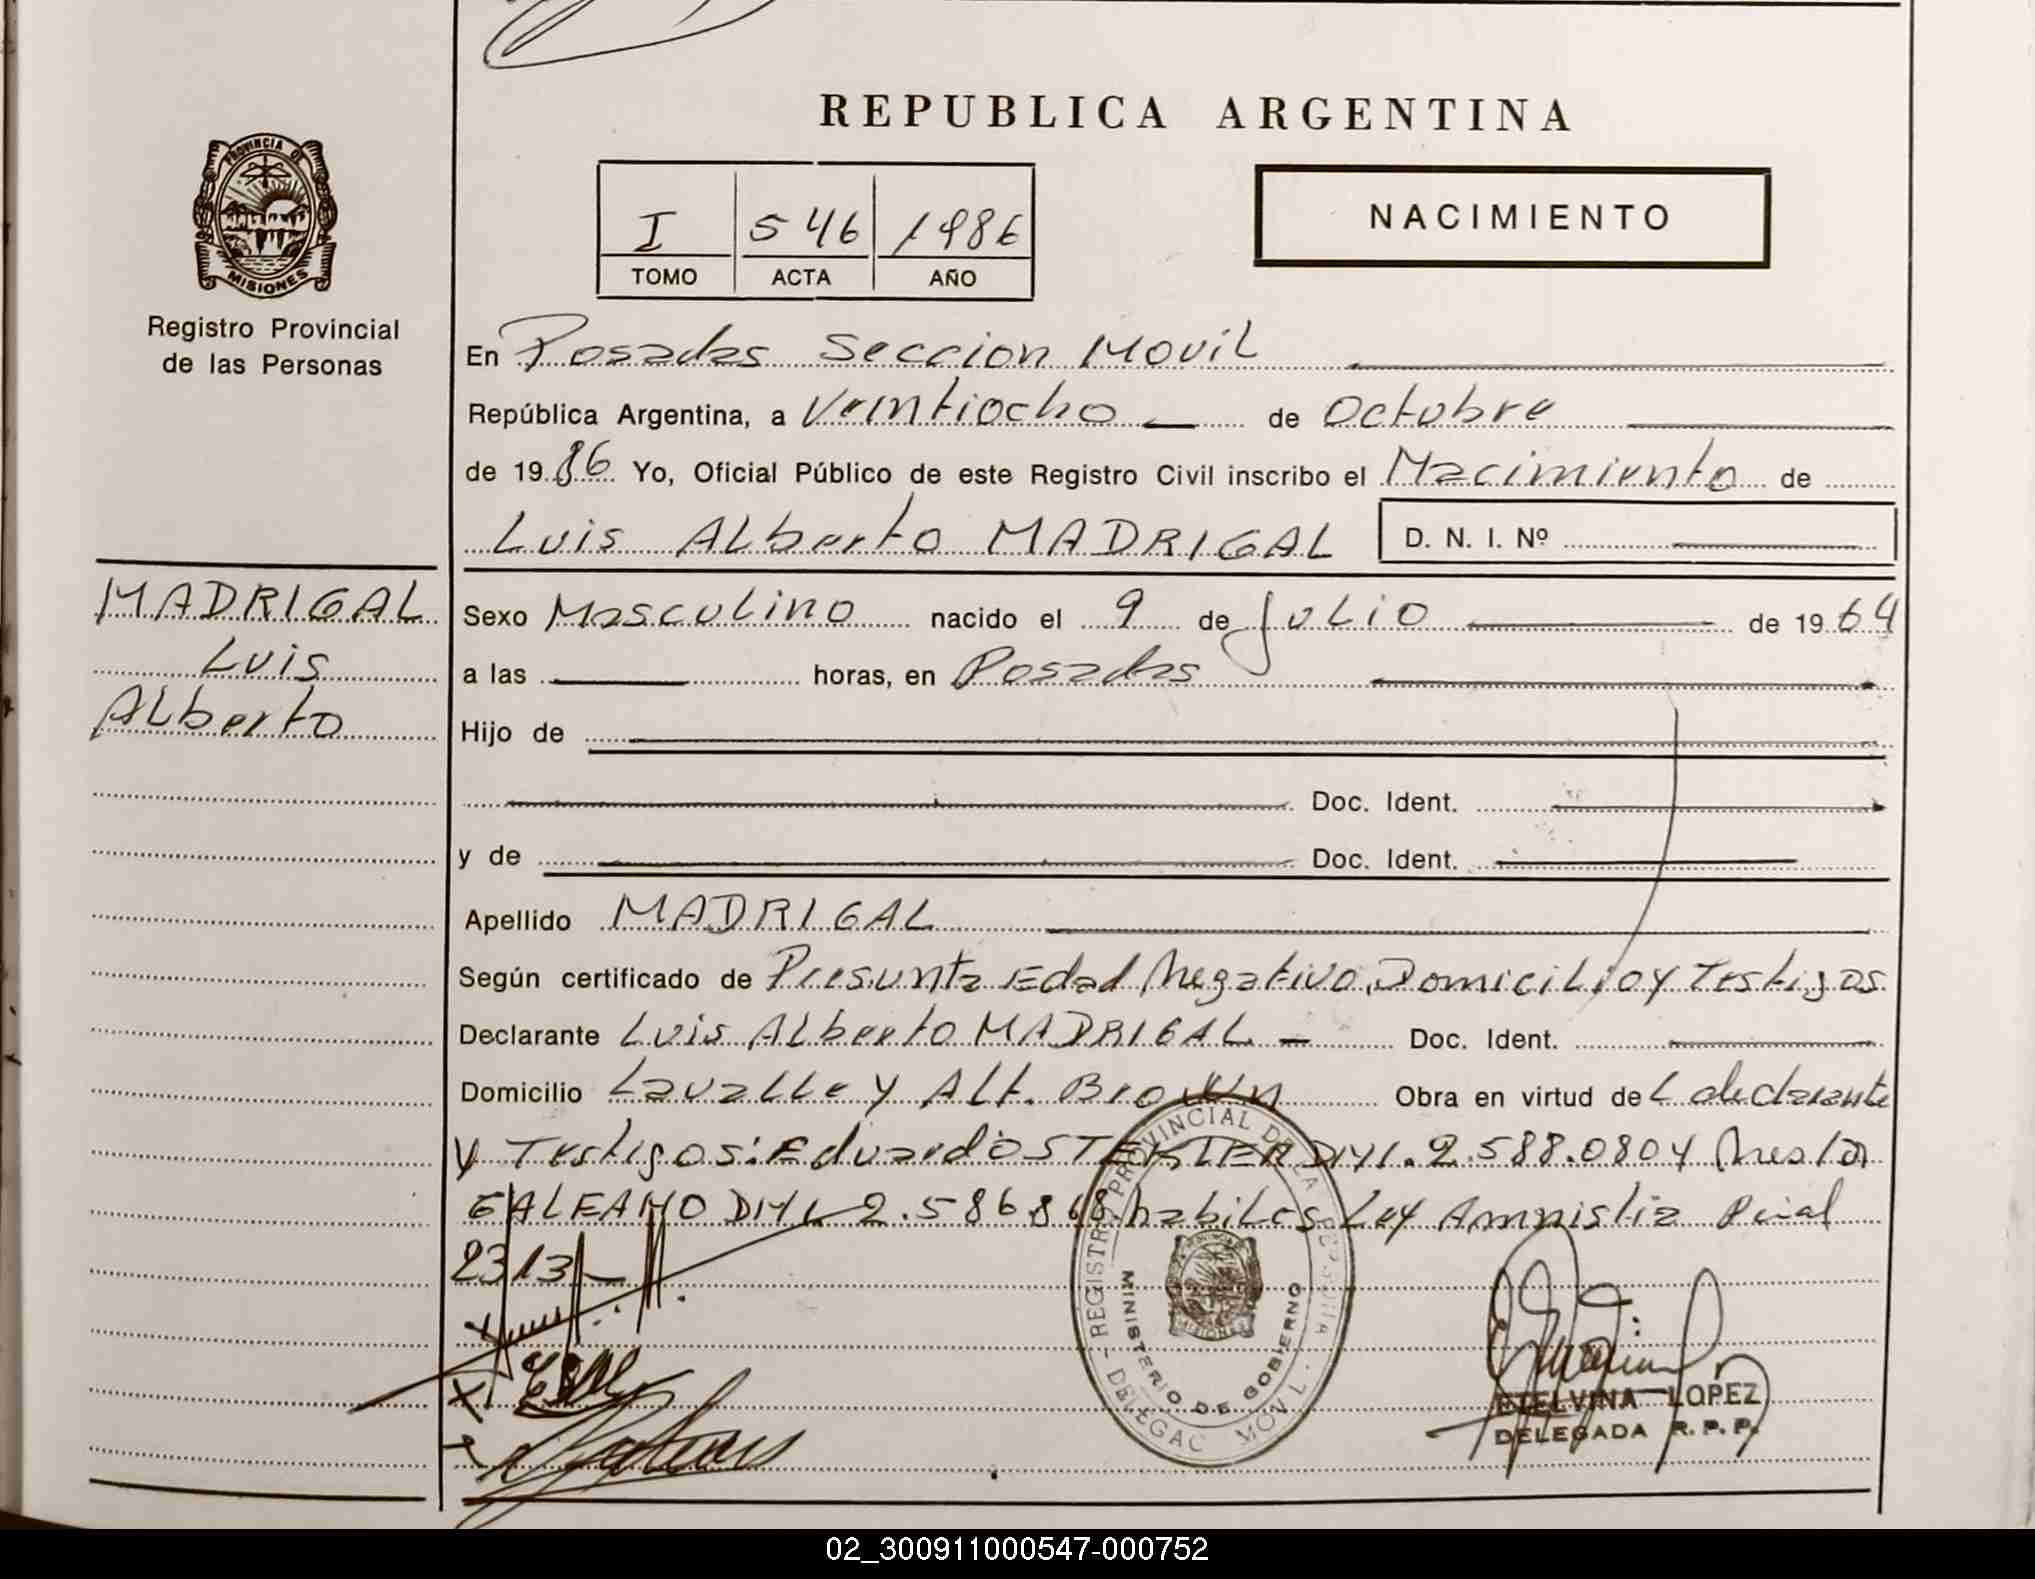 REPUBLICA ARGENTINA
PROVINCIA DE
MISIONES
Registro Provincial
de las Personas
I 546 1986
TOMO ACTA AÑO
NACIMIENTO
En Posadas Seccion Movil
República Argentina, a Veintiocho de Octubre
de 1986 Yo, Oficial Público de este Registro Civil inscribo el Nacimiento de
Luis Alberto MADRIGAL D. N. I. Nº
MADRIGAL
Luis
Alberto
Sexo Masculino nacido el 9 de Julio de 1964
a las horas, en Posadas
Hijo de
Doc. Ident.
y de Doc. Ident.
Apellido MADRIGAL
Según certificado de Presunta Edad Negativo, Domicilio y Testigos
Declarante Luis Alberto MADRIGAL Doc. Ident.
Domicilio Lavalle y Alt. Brown Obra en virtud del declarante
y Testigos: Eduardo DNI. 2.588.080 y
GALEANO DNI 2.586.868 habiles Ley Amnistia Penal
2313
REGISTRO PROVINCIAL DE LAS PERSONAS
MINISTERIO DE GOBIERNO
DELEGAC MOVIL
ETELVINA LOPEZ
DELEGADA R. P. P.
02_300911000547-000752